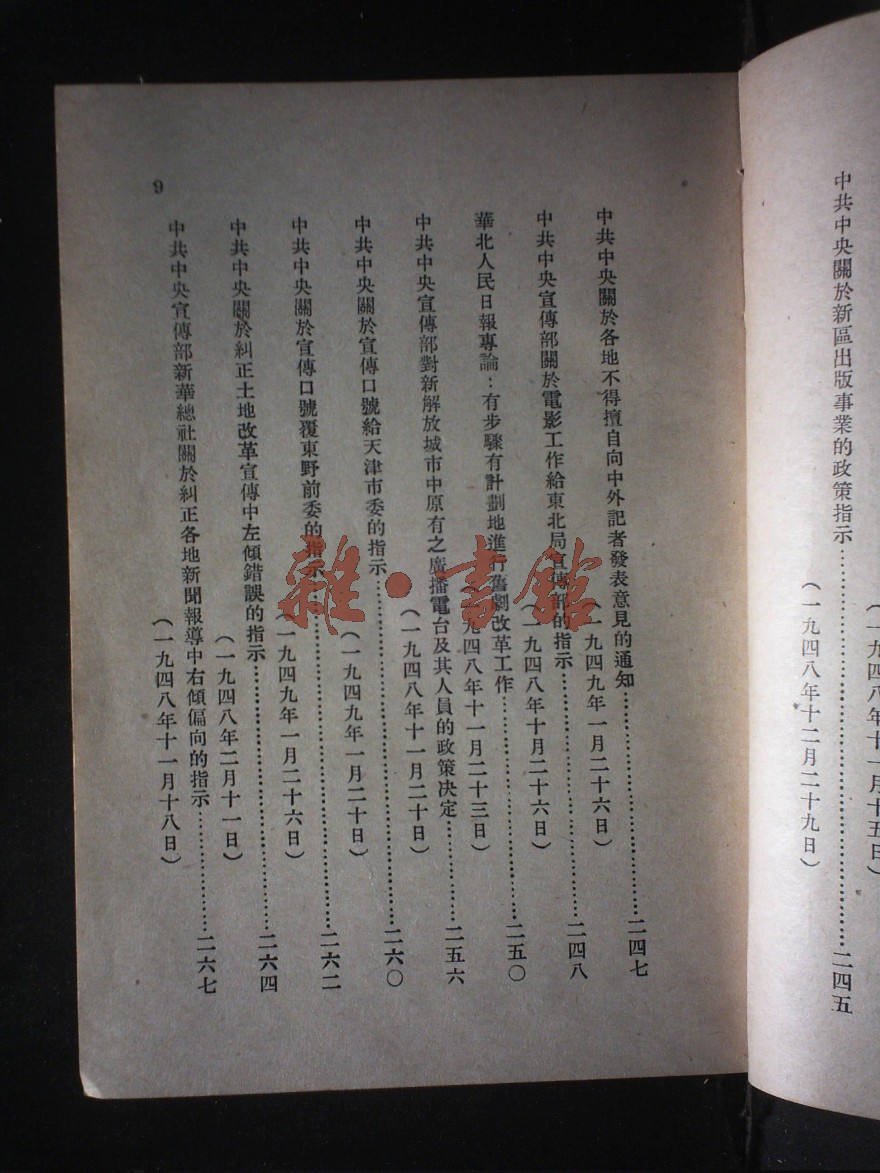 (一九四八年十一月十五日)
中共中央關於新區出版事業的政策指示……二四五
(一九四八年十二月二十九日)
中共中央關於各地不得擅自向中外記者發表意見的通知……二四七
(一九四九年一月二十六日)
中共中央宣傳部關於電影工作給東北局宣傳部的指示……二四八
(一九四八年十月二十六日)
華北人民日報專論：有步驟有計劃地進行舊劇改革工作……二五〇
(一九四八年十一月二十三日)
中共中央宣傳部對新解放城市中原有之廣播電台及其人員的政策決定……二五六
(一九四八年十一月二十日)
中共中央關於宣傳口號給天津市委的指示……二六〇
(一九四九年一月二十日)
中共中央關於宣傳口號覆東野前委的指示……二六二
(一九四九年一月二十六日)
中共中央關於糾正土地改革宣傳中左傾錯誤的指示……二六四
(一九四八年二月十一日)
中共中央宣傳部新華總社關於糾正各地新聞報導中右傾偏向的指示……二六七
(一九四八年十一月十八日)
9
雜·書館